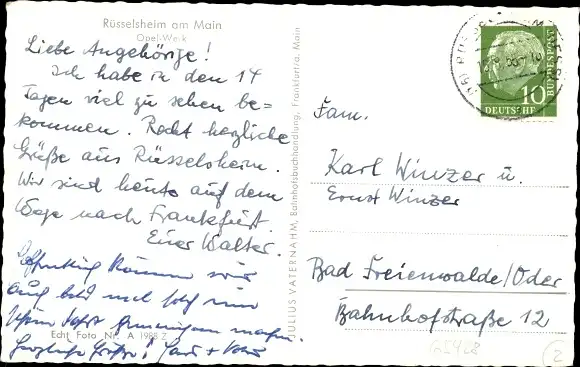 Rüsselsheim am Main
Opel-Werk
Liebe Angehörige!
Ich habe in den 14
Tagen viel zu sehen be-
kommen. Recht herzliche
Grüße aus Rüsselsheim.
Wir sind heute auf dem
Wege nach Frankfurt.
Euer Walter.
Hoffentlich können wir
auch bald mal
machen.
Herzliche Grüße!
Echt Foto Nr. A 1988 Z
JULIUS VATERNAHM, Bahnhofsbuchhandlung, Frankfurt/a. Main
10
DEUTSCHE
BUNDESPOST
Fam.
Karl Winzer u.
Ernst Winzer
Bad Freienwalde/Oder
Bahnhofstraße 12
2